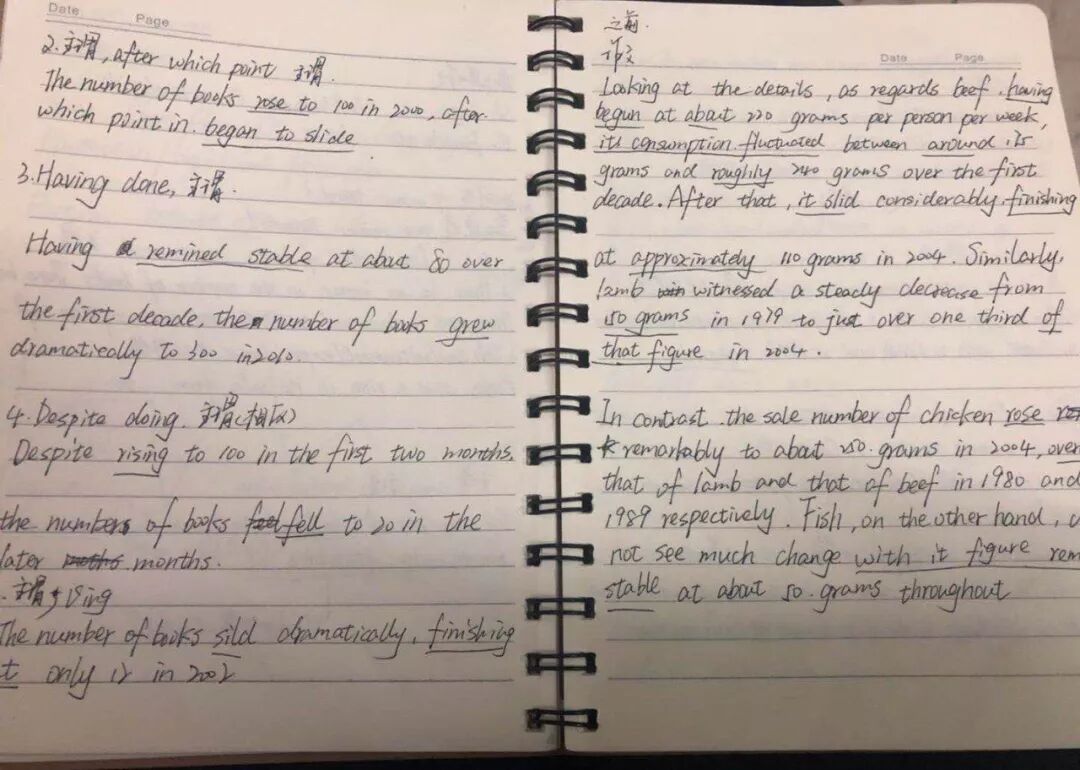 Date Page
2.主谓, after which point 主谓.
The number of books rose to 100 in 2000, after
which point in. began to slide
3.Having done, 主谓.
Having remined stable at about 80 over
the first decade, the number of books grew
dramatically to 300 in 2010.
4.Despite doing. 主谓(相反)
Despite rising to 100 in the first two months.
the numbers of books fell to 20 in the
later months.
主谓, Ving
The number of books sild dramatically, finishing
t only 12 in 2002
之前.
作文
Date Page
Looking at the details, as regards beef, having
begun at about 220 grams per person per week,
its consumption fluctuated between around
grams and roughily 240 grams over the first
decade. After that, it slid considerably, finishing
at approximately 110 grams in 2004. Similarly,
lamb witnessed a steady decrease from
150 grams in 1979 to just over one third of
that figure in 2004.
In contrast, the sale number of chicken rose
remarkably to about 250 grams in 2004, over
that of lamb and that of beef in 1980 and
1989 respectively. Fish, on the other hand,
not see much change with it figure rem
stable at about 50 grams throughout